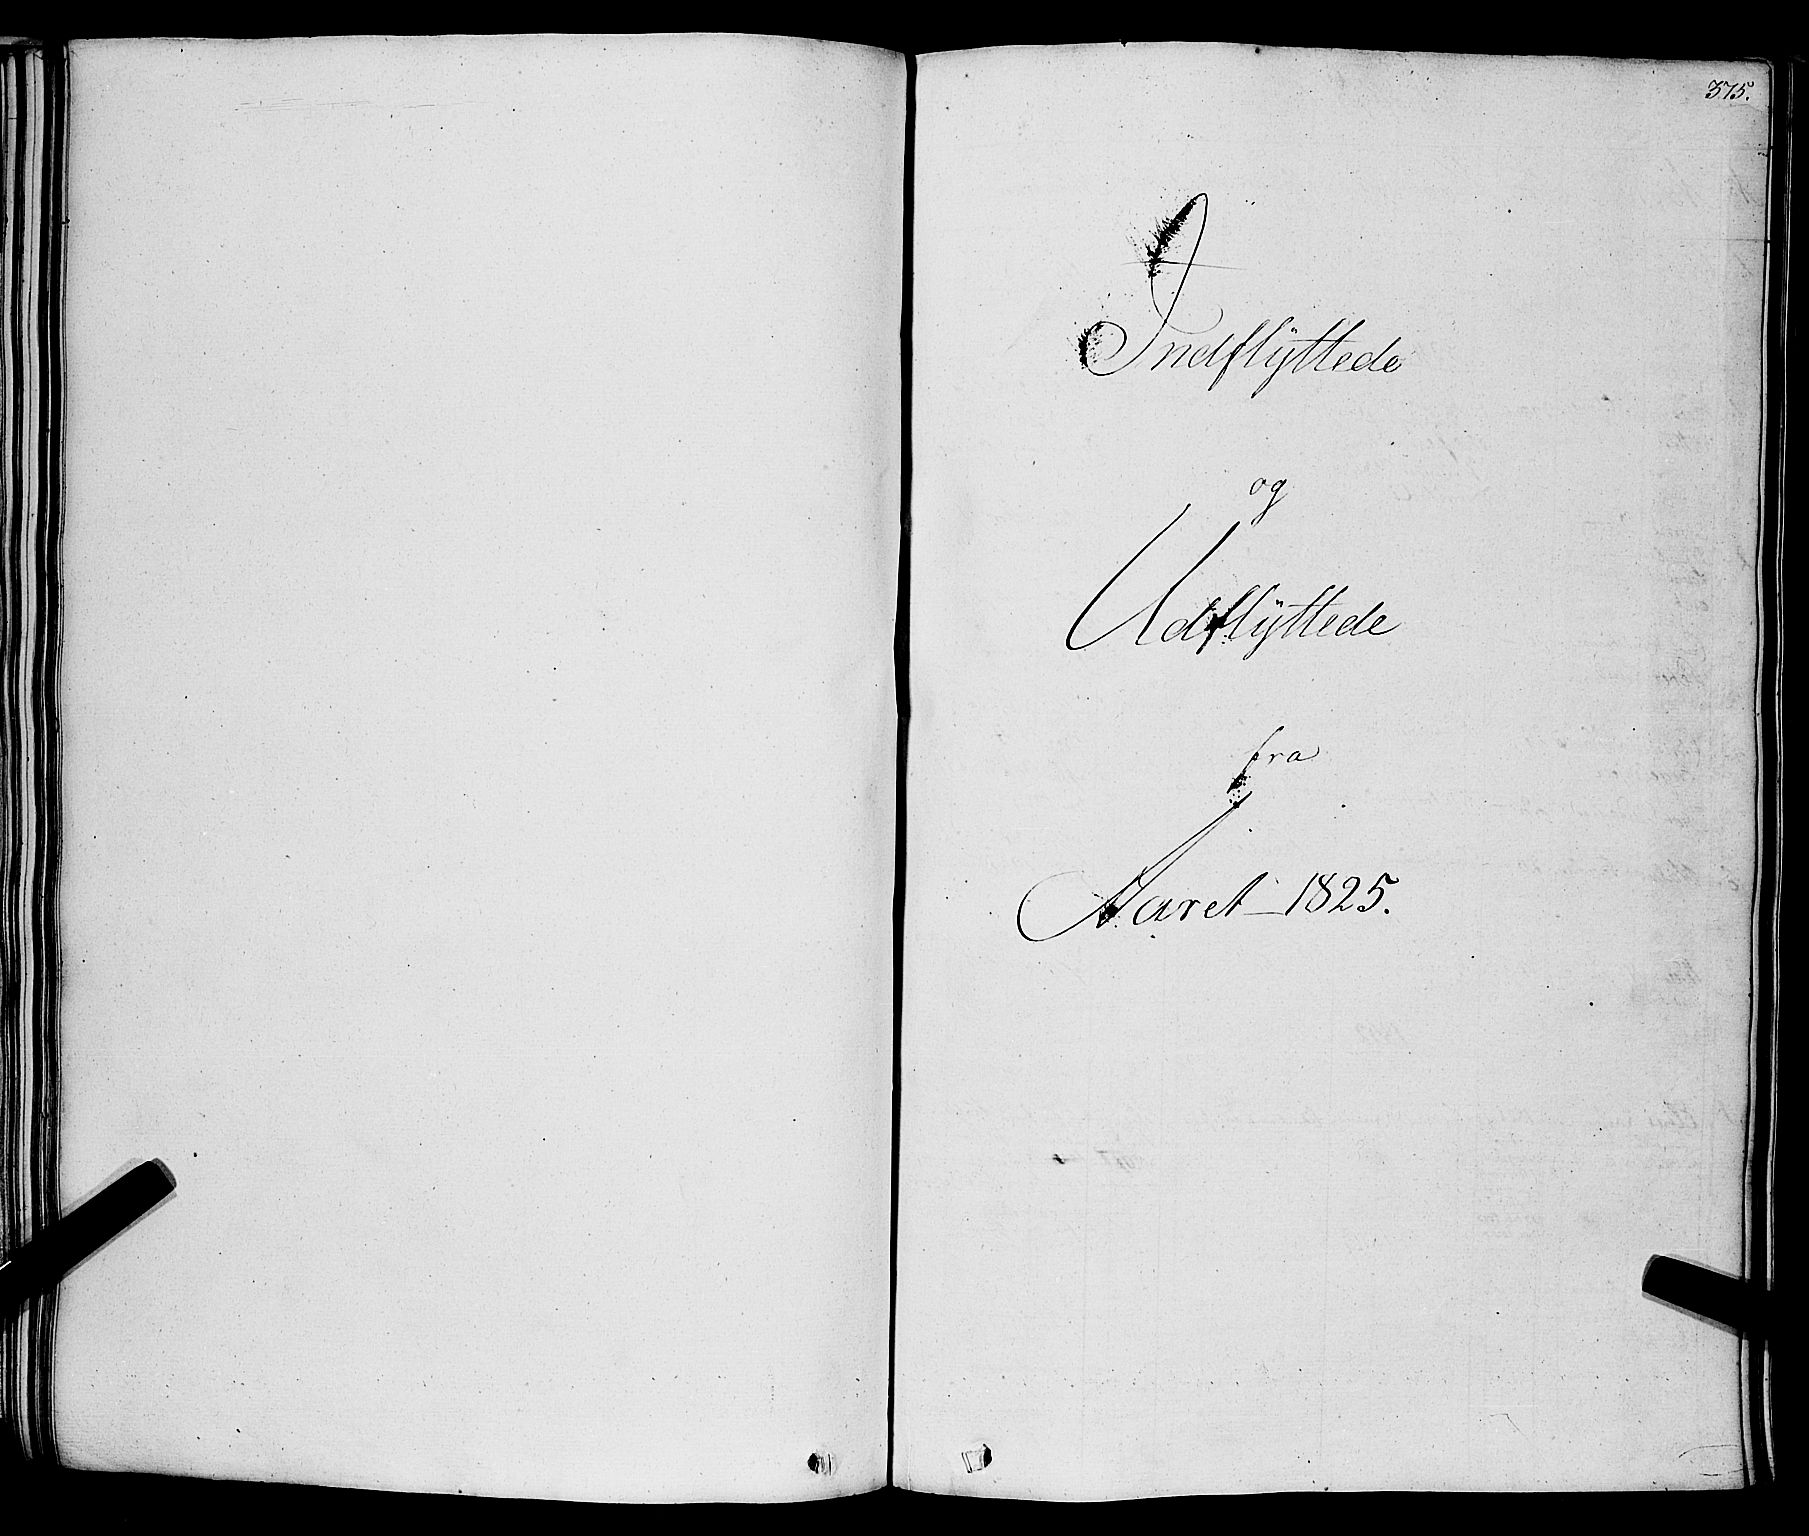 375.
Indflÿttede
og
Udflÿttede
fra
Aaret 1825.